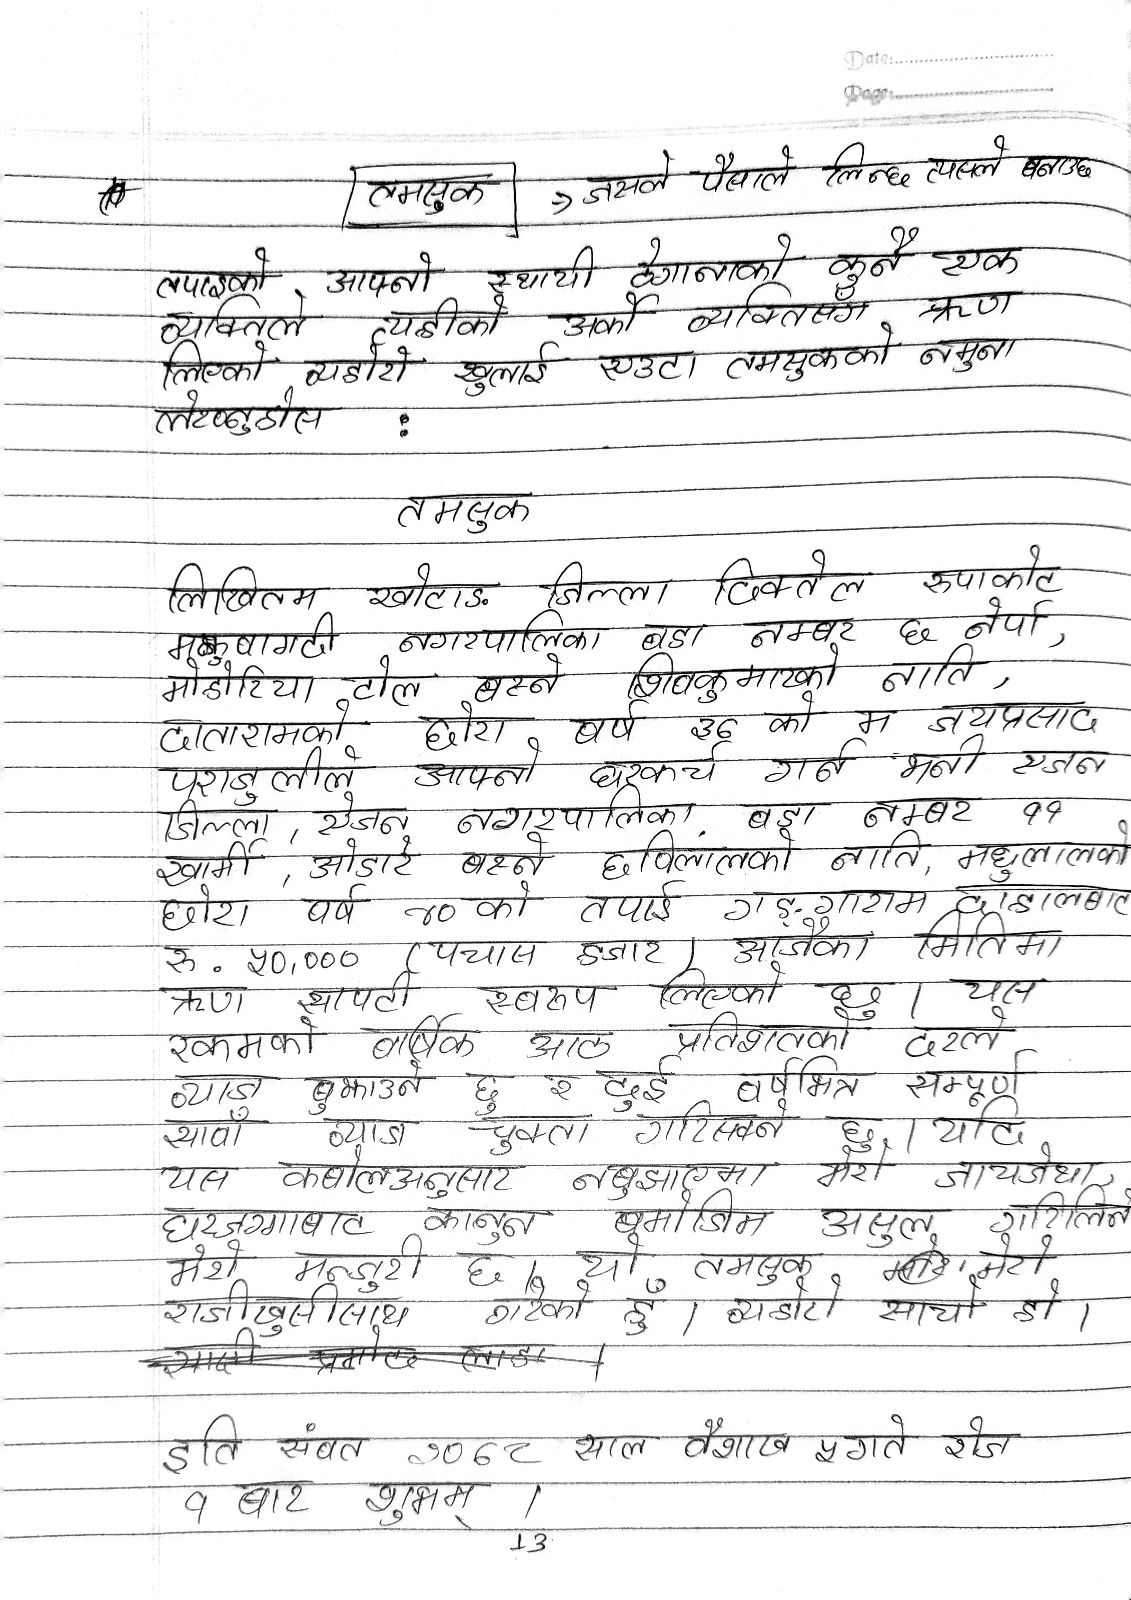 Date:
Page:
तमसुक → जसले पैसाले लिन्छ त्यसले बनाउछ
तपाइको आफ्नो स्थायी ठेगानाको कुनै एक
व्यक्तिले त्यहीको अर्को व्यक्तिसँग ऋण
लिएको व्यहोरो खुलाई एउटा तमसुकको नमुना
लेख्नुहोस :
तमसुक
लिखितम खोटाङ जिल्ला दिक्तेल रुपाकोट
मझुवागढी नगरपालिका वडा नम्बर ६ नेर्पा,
मोहोरिया टोल बस्ने शिवकुमारको नाति,
दातारामको छोरा वर्ष ३६ को म जयप्रसाद
पराजुलीले आफ्नो घरखर्च गर्न भनी एजन
जिल्ला, एजन नगरपालिका वडा नम्बर ११
खार्मी, ओडारे बस्ने छविलालको नाति, मधुलालको
छोरा वर्ष ४० को तपाई गङ्गाराम दाहालबाट
रु. ५०,००० (पचास हजार) आजैका मितिमा
ऋण सापटी स्वरुप लिएको छु। यस
रकमको वार्षिक आठ प्रतिशतको दरले
व्याज बुझाउने छु र दुई वर्षभित्र सम्पूर्ण
सावाँ व्याज चुक्ता गरिसक्ने छु। यदि
यस कबोलअनुसार नबुझाएमा मेरो जायजेथा,
घरजग्गाबाट कानुन बमोजिम असुल गरिलिने
मेरो मन्जुरी छ। यो तमसुक मेरो
राजीखुसीसाथ गरेको हुँ। व्यहोरो साचो हो।
इति संवत २०६८ साल वैशाख ५ गते रोज
१ बार शुभम्।
13